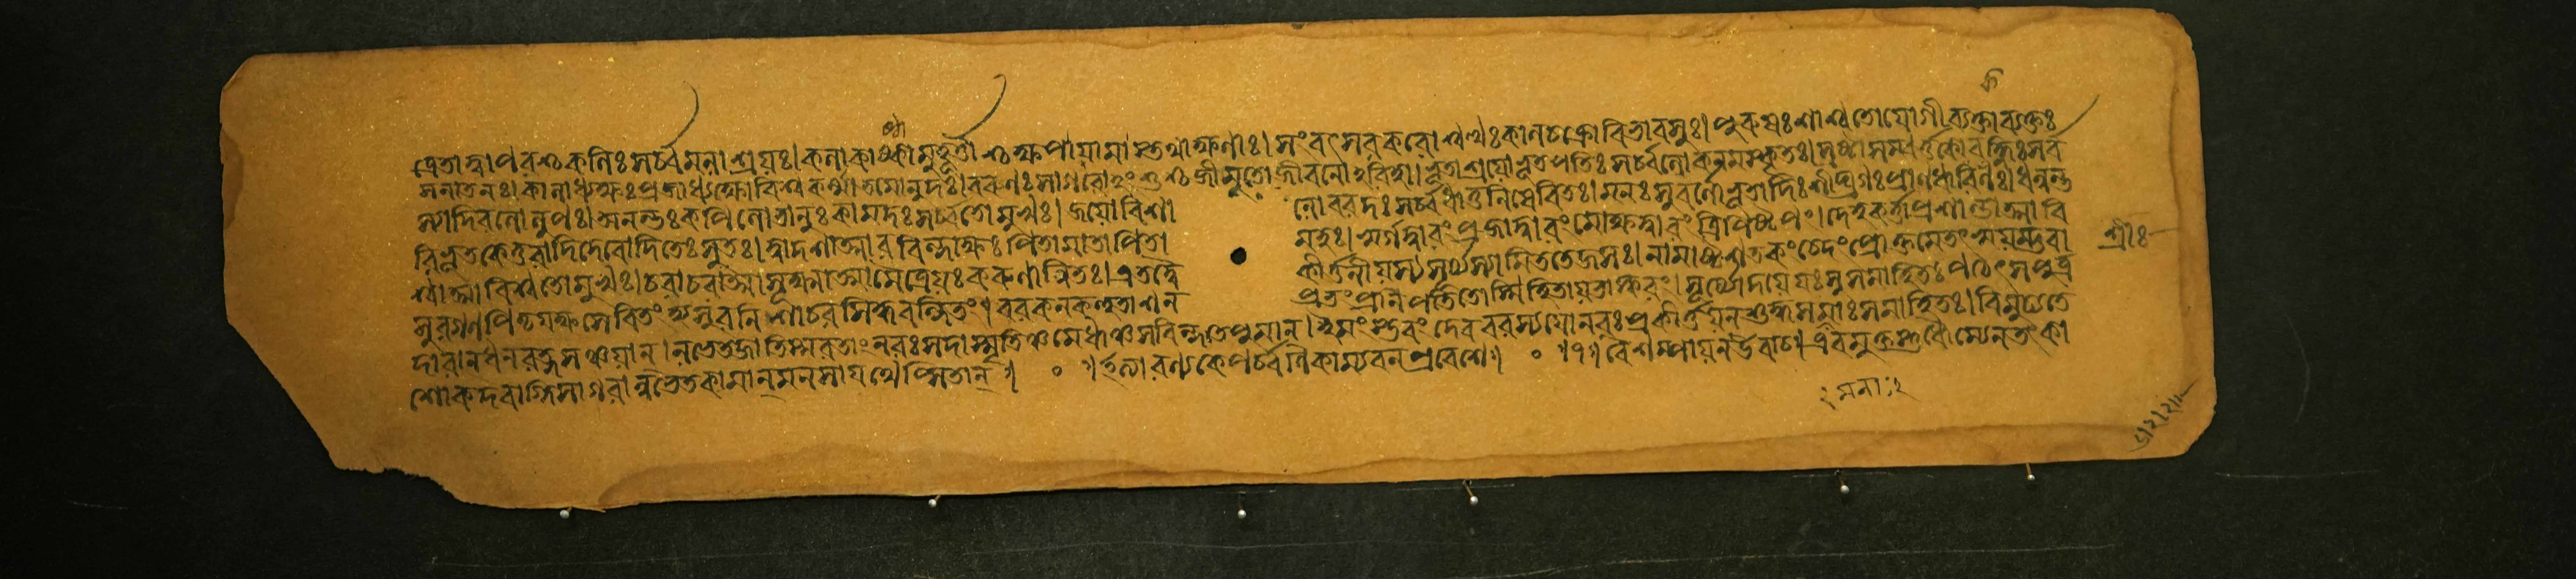 ত্রেতাদ্বাপরশ্চ কলিঃ সর্ব্বমলাশ্রয়ঃ। কলাকাষ্ঠামুহূর্ত্তাশ্চ ক্ষপাযামাস্তথাক্ষণাঃ। সংবৎসরকরোশ্বত্থঃ কালচক্রোবিভাবসুঃ। পুরুষঃ শাশ্বতোযোগী ব্যক্তাব্যক্তঃ
সনাতনঃ। কালাধ্যক্ষঃ প্রজাধ্যক্ষোবিশ্বকর্ম্মাতমোনুদঃ। বরুণঃ সাগরোংশুশ্চ জীমূতোজীবনোঽরিহা। ভূতাশ্রয়োভূতপতিঃ সর্ব্বলোকনমস্কৃতঃ। স্রষ্টাসম্বর্ত্তকোবহ্নিঃ সর্ব
স্যাদিরলোলুপঃ। অনন্তঃ কপিলোভানুঃ কামদঃ সর্ব্বতোমুখঃ। জয়োবিশা লোবরদঃ সর্ব্বধাতুনিষেবিতঃ। মনঃ সুবর্ণোভূতাদিঃ শীঘ্রগঃ প্রাণধারিণঃ। ধন্বন্ত
রির্ধূতকেতুরাদিদেবোদিতেঃ সুতঃ। দ্বাদশাত্মারবিন্দাক্ষঃ পিতামাতাপিতা মহঃ। স্বর্গদ্বারং প্রজাদ্বারং মোক্ষদ্বারং ত্রিপিষ্টপং। দেহকর্ত্তাপ্রশান্তাত্মাবি
শ্বাত্মাবিশ্বতোমুখঃ। চরাচরাত্মাসূক্ষ্মাত্মামৈত্রেয়ঃ করুণান্বিতঃ। এতদ্বৈ কীর্ত্তনীয়স্য সূর্য্যস্যামিততেজসঃ। নামাষ্টশতকং চেদং প্রোক্তমেতৎ স্বয়ম্ভুবা
সুরগণপিতৃযক্ষসেবিতং হ্যসুরনিশাচরসিদ্ধবন্দিতং। বরকনকহুতাশন প্রভং প্রণিপতিতোস্মিহিতায়ভাস্করং। সূর্য্যোদয়েযঃ সুসমাহিতঃ পঠেৎ সপুত্র
দারান্ধনরত্নসঞ্চয়ান্। লভেতজাতিস্মরতাং নরঃ সদা স্মৃতিঞ্চ মেধাঞ্চ সবিন্দতেপুমান্। ইমং স্তবং দেববরস্যযোনরঃ প্রকীর্ত্তয়েচ্ছুদ্ধমনাঃ সমাহিতঃ। বিমুচ্যতে
শোকদবাগ্নিসাগরাল্লভেতকামান্মনসাযথেপ্সিতান্॥ ০ ॥ ইত্যারণ্যকেপর্ব্বণিকাম্যবনপ্রবেশে॥ ০ ॥ ৭॥ বৈশম্পায়নউবাচ। এবমুক্তস্তুধৌম্যেনতৎকা
শ্রীঃ